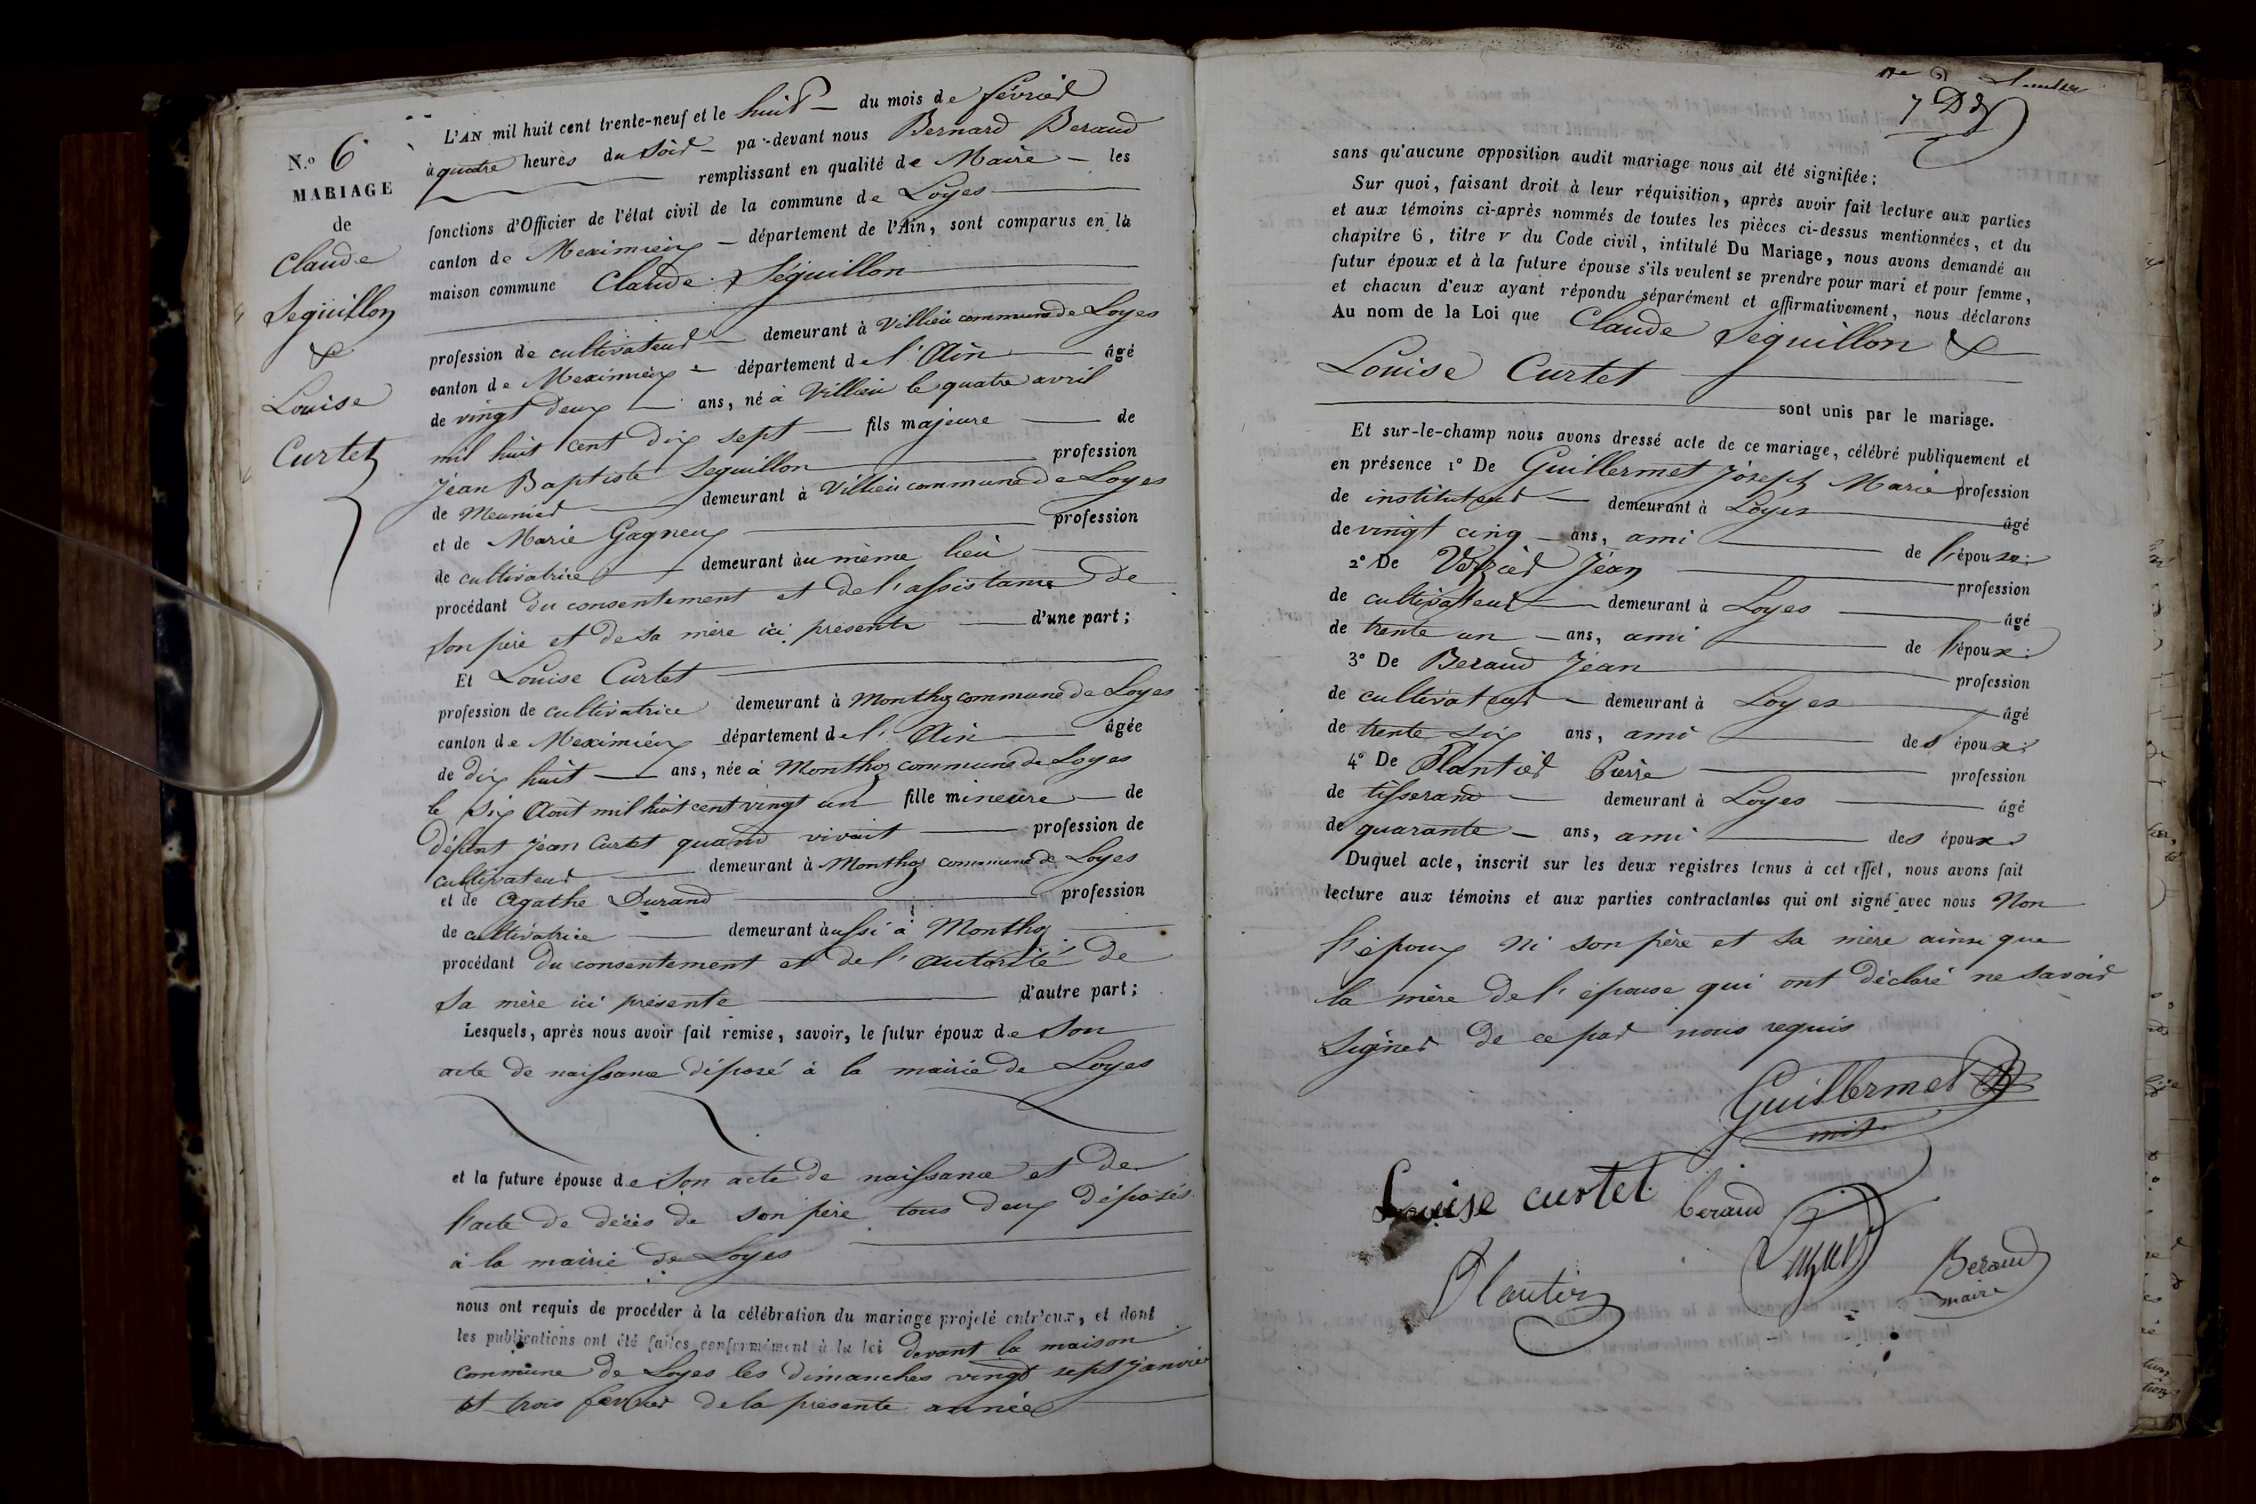 N.o 6
MARIAGE
de
Claude
Seguillon
&
Louise
Curtet
L'AN mil huit cent trente-neuf et le huit du mois de février
à quatre heures du soir pa -devant nous Bernard Beraud
remplissant en qualité de Maire les
fonctions d'Officier de l'état civil de la commune de Loyes
canton de Meximieux département de l'Ain, sont comparus en la
maison commune Claude Séguillon
profession de cultivateur demeurant à Villieu commune de Loyes
canton de Meximieux département de l'Ain âgé
de vingt deux ans, né à Villieu le quatre avril
mil huit cent dix sept fils majeure de
Jean Baptiste Seguillon profession
de Meunier demeurant à Villieu commune de Loyes
et de Marie Gagneux profession
de cultivatrice demeurant au même lieu
procédant du consentement et de l'assistance de
son père et de sa mère ici présents d'une part;
Et Louise Curtet
profession de cultivatrice demeurant à Monthoz commune de Loyes
canton de Meximieux département de l'Ain âgée
de dix huit ans, née à Monthoz commune de Loyes
le six Août mil huit cent vingt un fille mineure de
défunt Jean Curtet quand vivait profession de
cultivateur demeurant à Monthoz commune de Loyes
et de Agathe Durand profession
de cultivatrice demeurant aussi à Monthoz
procédant du consentement et de l'autorité de
sa mère ici présente d'autre part;
Lesquels, après nous avoir fait remise, savoir, le futur époux de son
acte de naissance déposé à la mairie de Loyes
et la future épouse de son acte de naissance et de
l'acte de décès de son père tous deux déposés
à la mairie de Loyes
nous ont requis de procéder à la célébration du mariage projeté entr'eux, et dont
les publications ont été faites conformément à la loi devant la maison
commune de Loyes les dimanches vingt sept janvier
et trois février de la présente année
sans qu'aucune opposition audit mariage nous ait été signifiée;
Sur quoi, faisant droit à leur réquisition, après avoir fait lecture aux parties
et aux témoins ci-après nommés de toutes les pièces ci-dessus mentionnées, et du
chapitre 6, titre v du Code civil, intitulé Du Mariage, nous avons demandé au
futur époux et à la future épouse s'ils veulent se prendre pour mari et pour femme,
et chacun d'eux ayant répondu séparément et affirmativement, nous déclarons
Au nom de la Loi que Claude Seguillon &
Louise Curtet
sont unis par le mariage.
Et sur-le-champ nous avons dressé acte de ce mariage, célébré publiquement et
en présence 1° De Guillermet Joseph Marie profession
de instituteur demeurant à Loyes âgé
de vingt cinq ans, ami de l'épouse:
2° De Verzier Jean profession
de cultivateur demeurant à Loyes âgé
de trente un ans, ami de l'époux:
3° De Beraud Jean profession
de cultivateur demeurant à Loyes âgé
de trente six ans, ami des époux:
4° De Plantier Pierre profession
de tisserand demeurant à Loyes âgé
de quarante ans, ami des époux
Duquel acte, inscrit sur les deux registres tenus à cet effet, nous avons fait
lecture aux témoins et aux parties contractantes qui ont signé avec nous Non
l'époux ni son père et sa mère ainsi que
la mère de l'épouse qui ont déclaré ne savoir
signer de ce par nous requis
Guillermet
Louise curtet beraud
Plantier
Beraud
maire